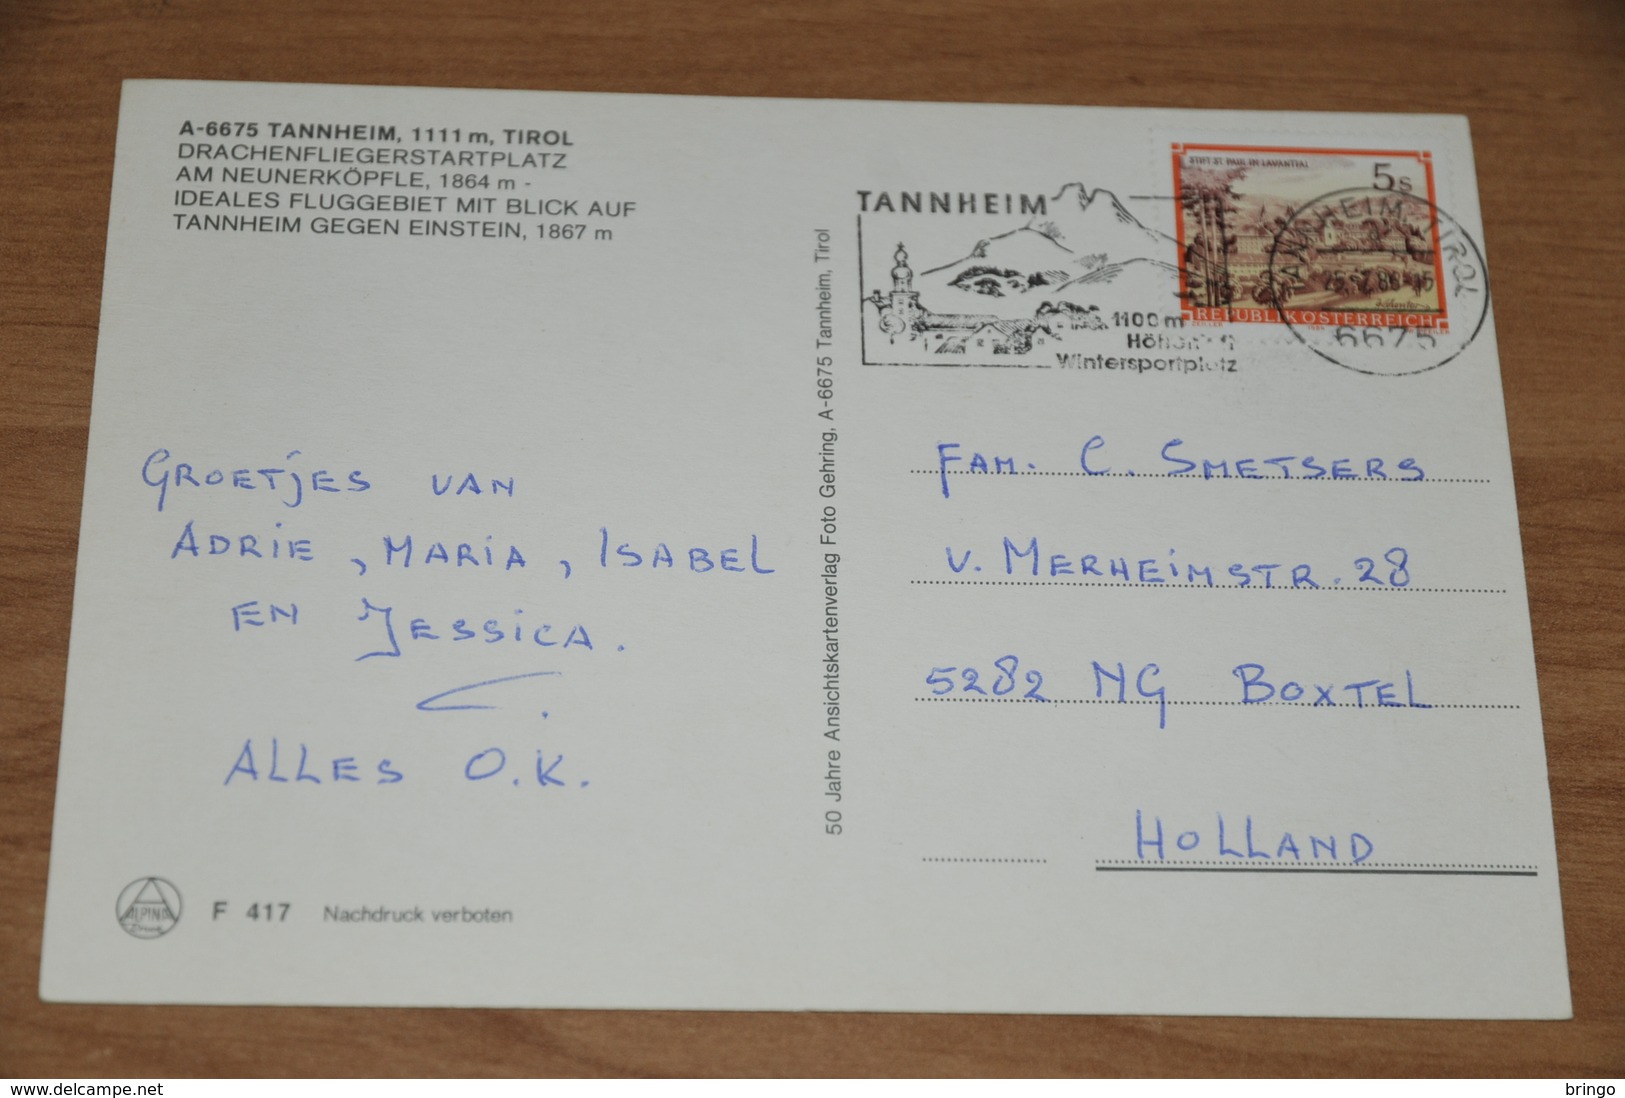 A-6675 TANNHEIM, 1111 m, TIROL
DRACHENFLIEGERSTARTPLATZ
AM NEUNERKÖPFLE, 1864 m -
IDEALES FLUGGEBIET MIT BLICK AUF
TANNHEIM GEGEN EINSTEIN, 1867 m
GROETJES VAN
ADRIE, MARIA, ISABEL
EN JESSICA.
ALLES O.K.
ALPINA
F 417 Nachdruck verboten
50 Jahre Ansichtskartenverlag Foto Gehring, A-6675 Tannheim, Tirol
TANNHEIM
1100 m
Wintersportplatz
STIFT ST. PAUL IM LAVANTTAL
5 S
REPUBLIK ÖSTERREICH
TANNHEIM, TIROL
6675
FAM. C. SMETSERS
V. MERHEIMSTR. 28
5282 NG BOXTEL
HOLLAND
http://www.delcampe.net
bringo